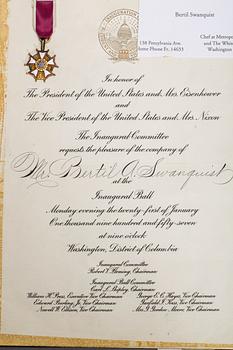 Bertil Swanquist
Chef at Metropo
138 Pennsylvania Ave.
and The White
Home Phone Fr. 14653
Washington
In honor of
The President of the United States and Mrs. Eisenhower
and
The Vice President of the United States and Mrs. Nixon
The Inaugural Committee
requests the pleasure of the company of
Mr. Bertil A. Swanquist
at the
Inaugural Ball
Monday evening the twenty-first of January
One thousand nine hundred and fifty-seven
at nine o'clock
Washington, District of Columbia
Inaugural Committee
Robert V. Fleming, Chairman
Inaugural Ball Committee
Carl L. Shipley, Chairman
William H. Press, Executive Vice Chairman
Vice Chairman
Newell W. Ellison, Vice Chairman
George E. C. Hayes, Vice Chairman
Vice Chairman
Mrs. J. Garden Moore, Vice Chairman